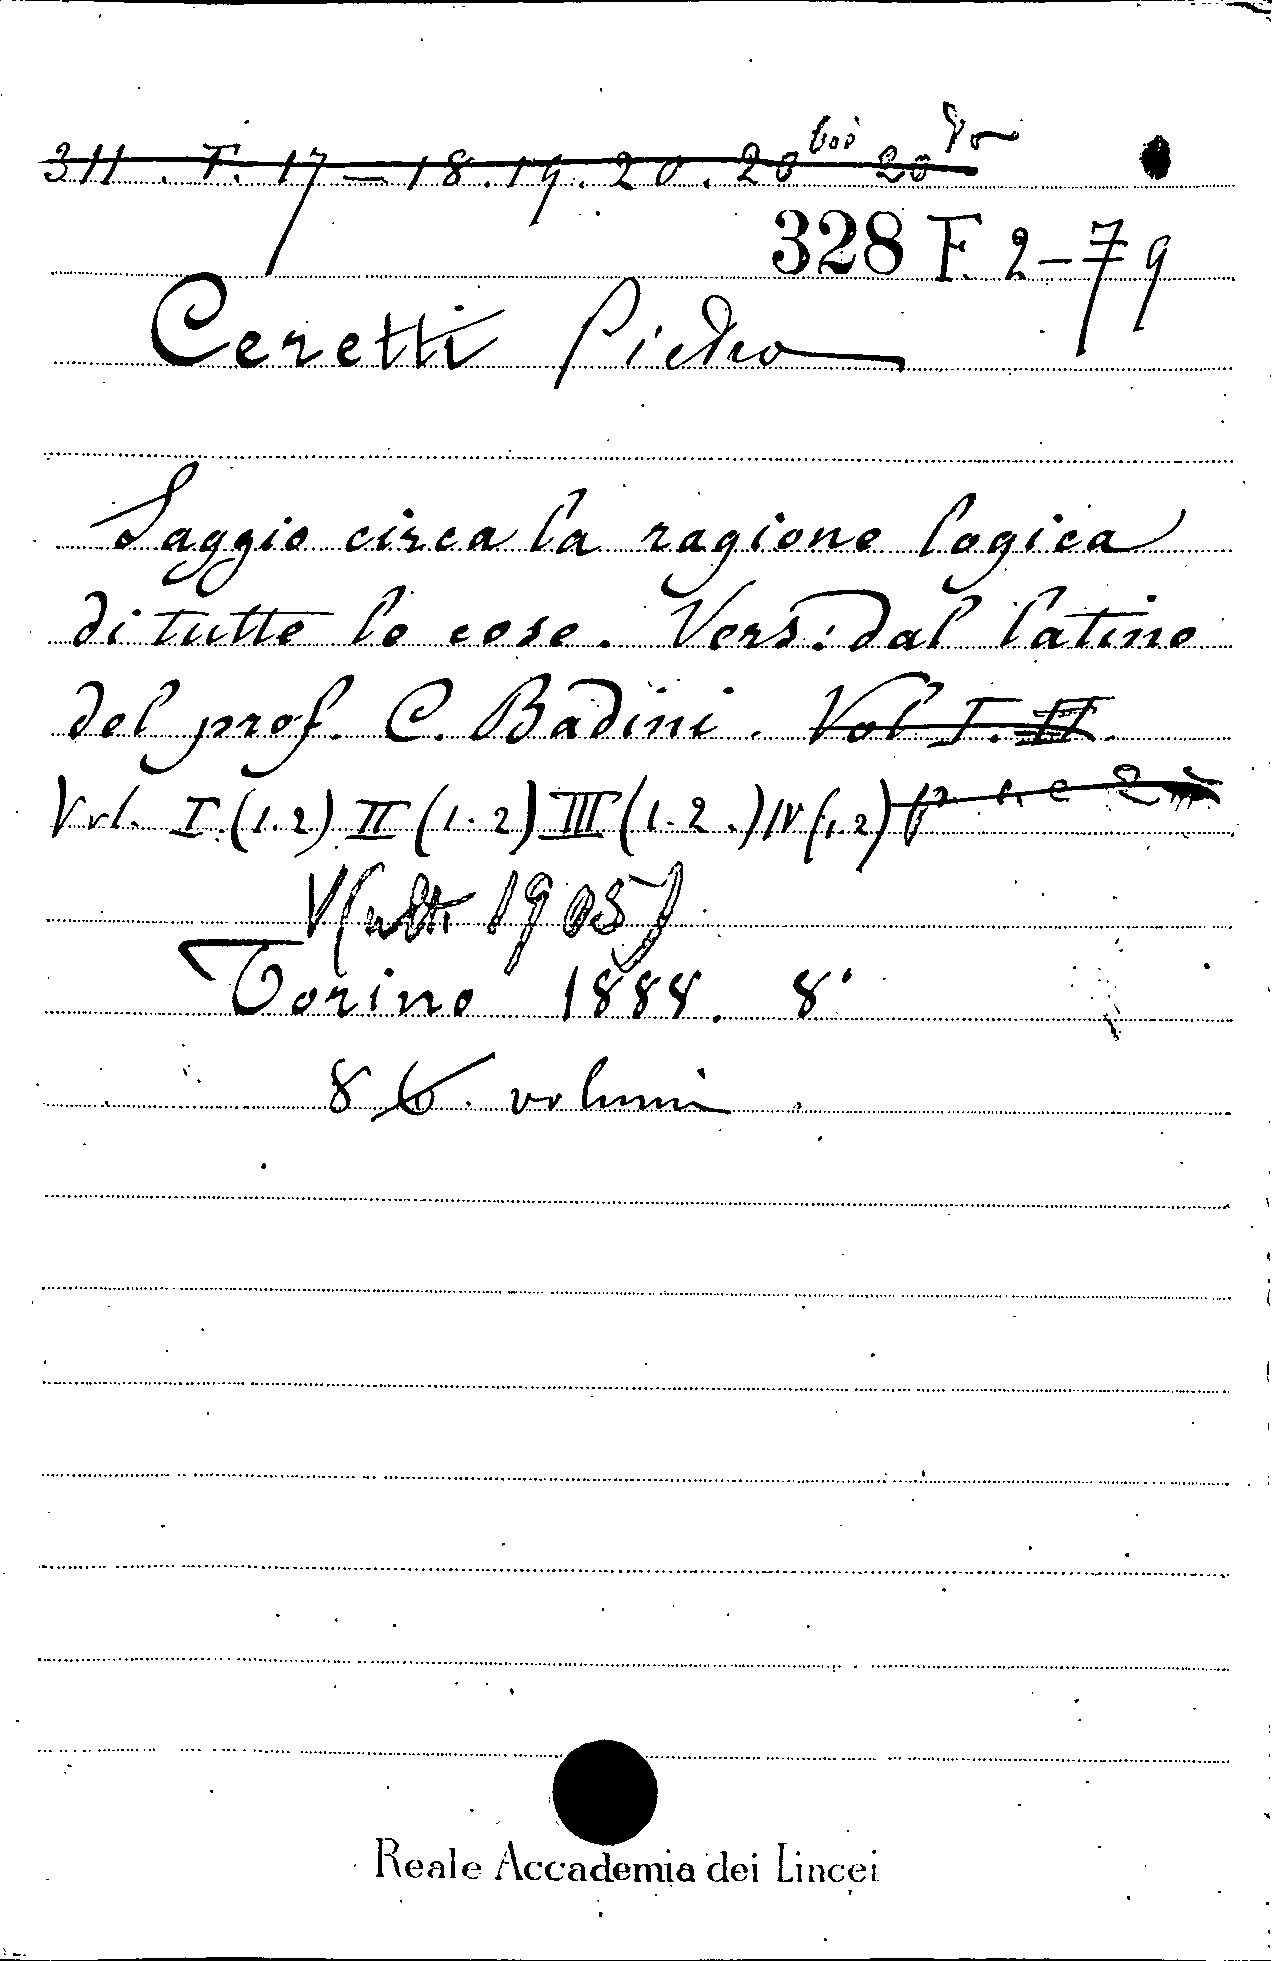 311. F. 17-18.19.20.20 bis 20
328 F. 2-79
Ceretti Pietro
Saggio circa la ragione logica
di tutte le cose. Vers: dal latino
del prof. C. Badini. Vol I. II.
Vol. I.(1.2) II (1.2) III (1.2.) IV (1,2) p. 1. e 2
V( 1905)
Torino 1888. 8°
8 6. volumi
Reale Accademia dei Lincei